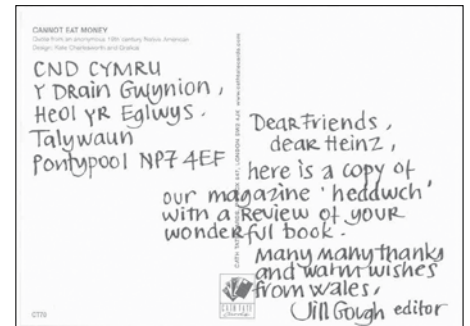 CANNOT EAT MONEY
Quote from an anonymous 19th century Native American
Design: Kate Charlesworth and Grafica
CND CYMRU
Y DRAin Gwynion,
Heol yr Eglwys.
Talywaun
Pontypool NP7 4EF
Dear Friends,
dear Heinz,
here is a copy of
our magazine 'heddwch'
with a Review of your
wonderful book.
many many thanks
and warm wishes
from wales,
Jill Gough editor
www.cathtatecards.com
CATH TATE
Cards
CT70